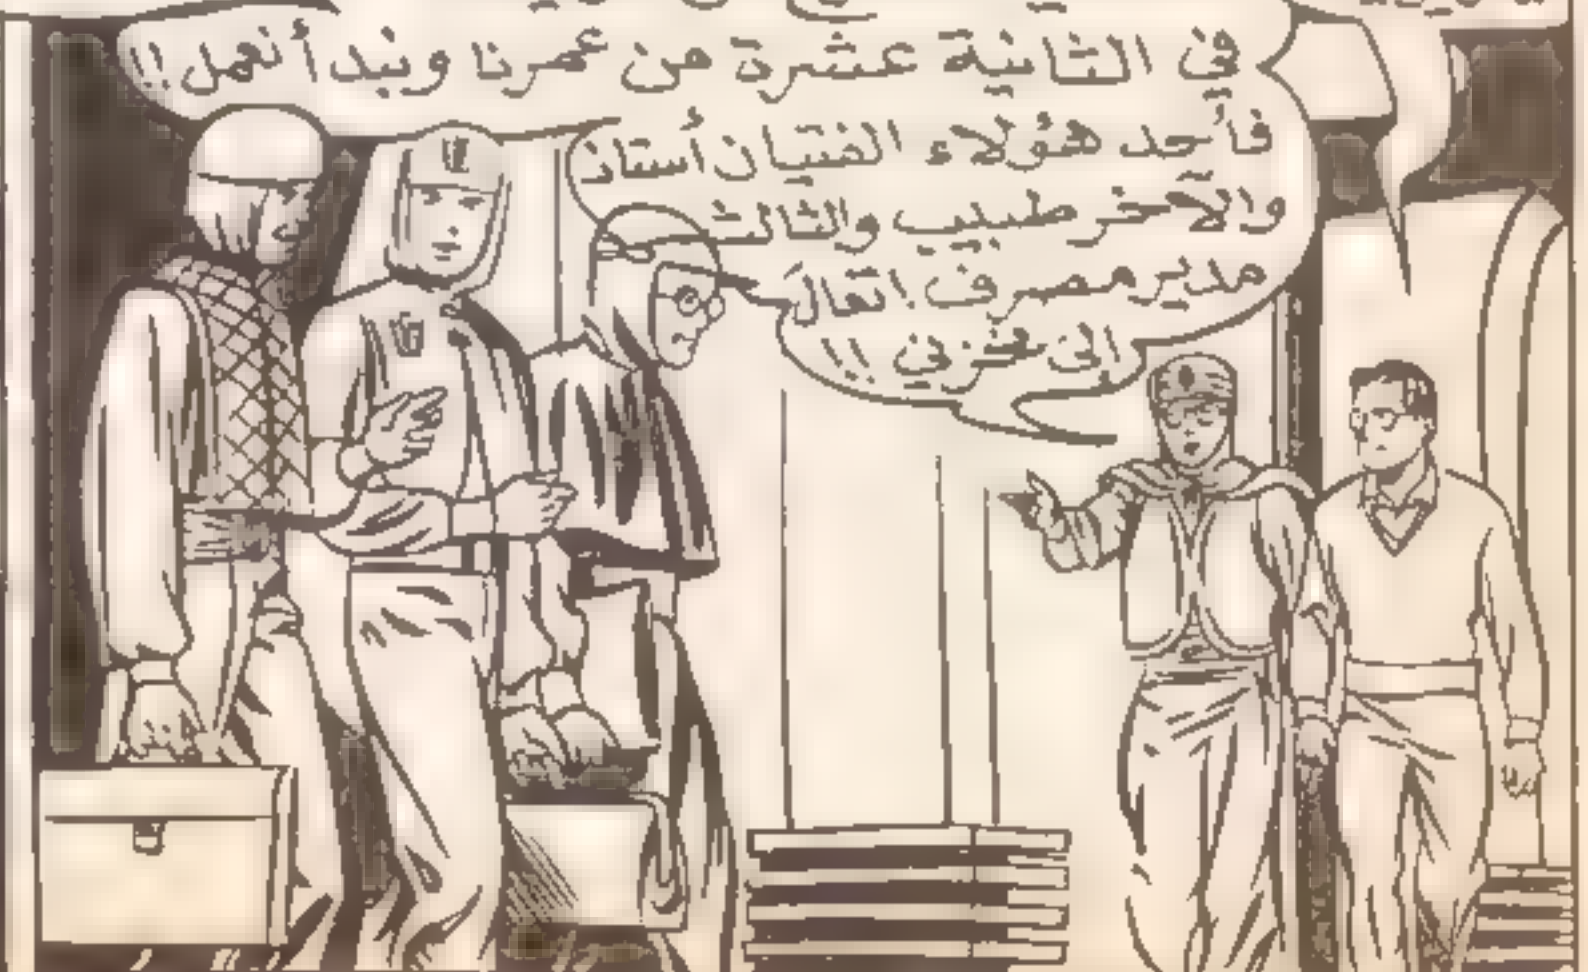 في الثانية عشرة من عمرنا ونبدأ نعمل!!
فأحد هؤلاء الفتيان أستاذ
والآخر طبيب والثالث
مدير مصرف! تعالَ
إلى مخزني!!